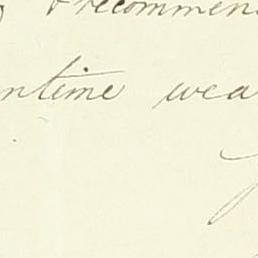 recommen
ntime wea